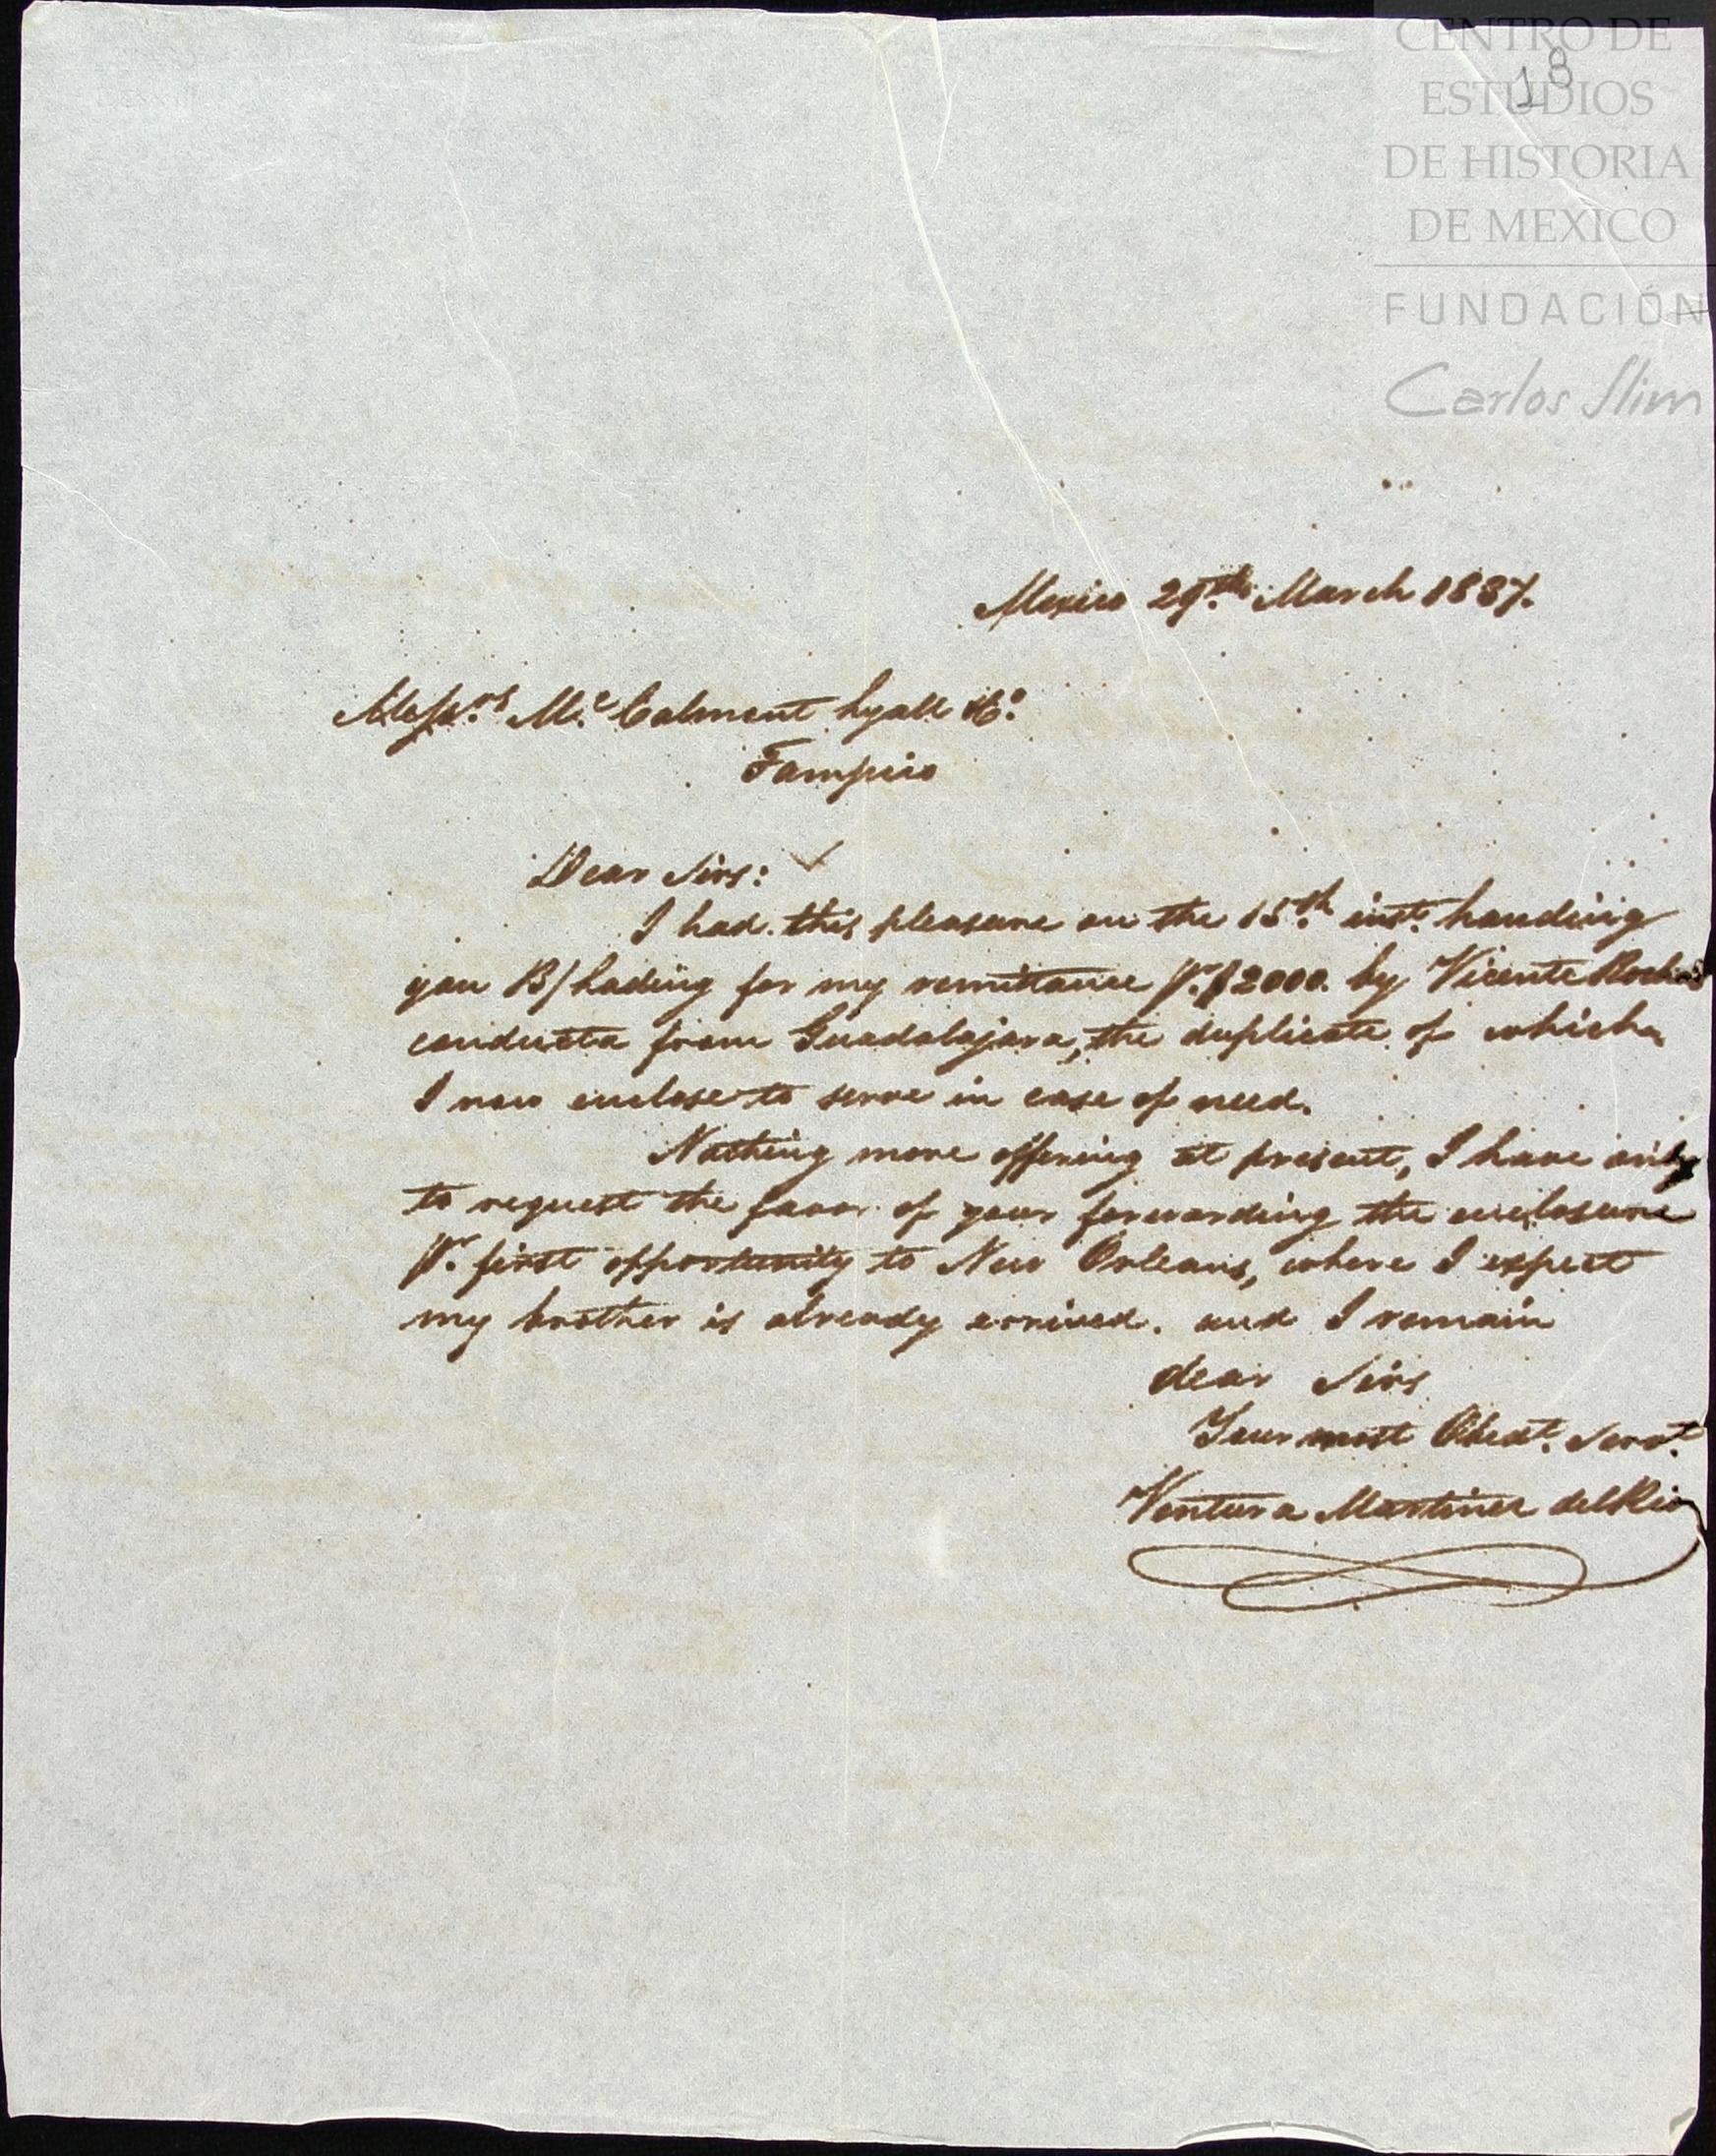 CENTRO DE
ESTUDIOS
DE HISTORIA
DE MEXICO
FUNDACIÓN
Carlos Slim
18
Mexico 29th March 1837.
Messrs Mc Calmont Lyall & Co
Tampico
Dear Sirs:
I had this pleasure on the 15th inst. handing
you B/Lading for my remittance pr $2000. by Vicente
conducta from Guadalajara, the duplicate of which
I now enclose to serve in case of need.
Nothing more offering at present, I have only
to request the favor of your forwarding the enclosure
pr first opportunity to New Orleans, where I expect
my brother is already arrived. and I remain
dear Sirs
Your most Obedt. Servt.
Ventura Martinez del Rio